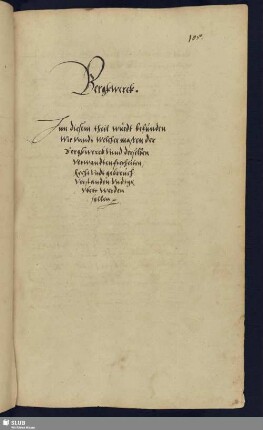 Bergkwerck.
Inn diesem theil wurdt befunden
Wie unnd Welcher massen der
Bergkwerck Unnd derselben
Verwandten freiheiten,
Recht Unnd gebreuch
Verstanden Unnd ge,
Ubet werden
sollen
SLUB